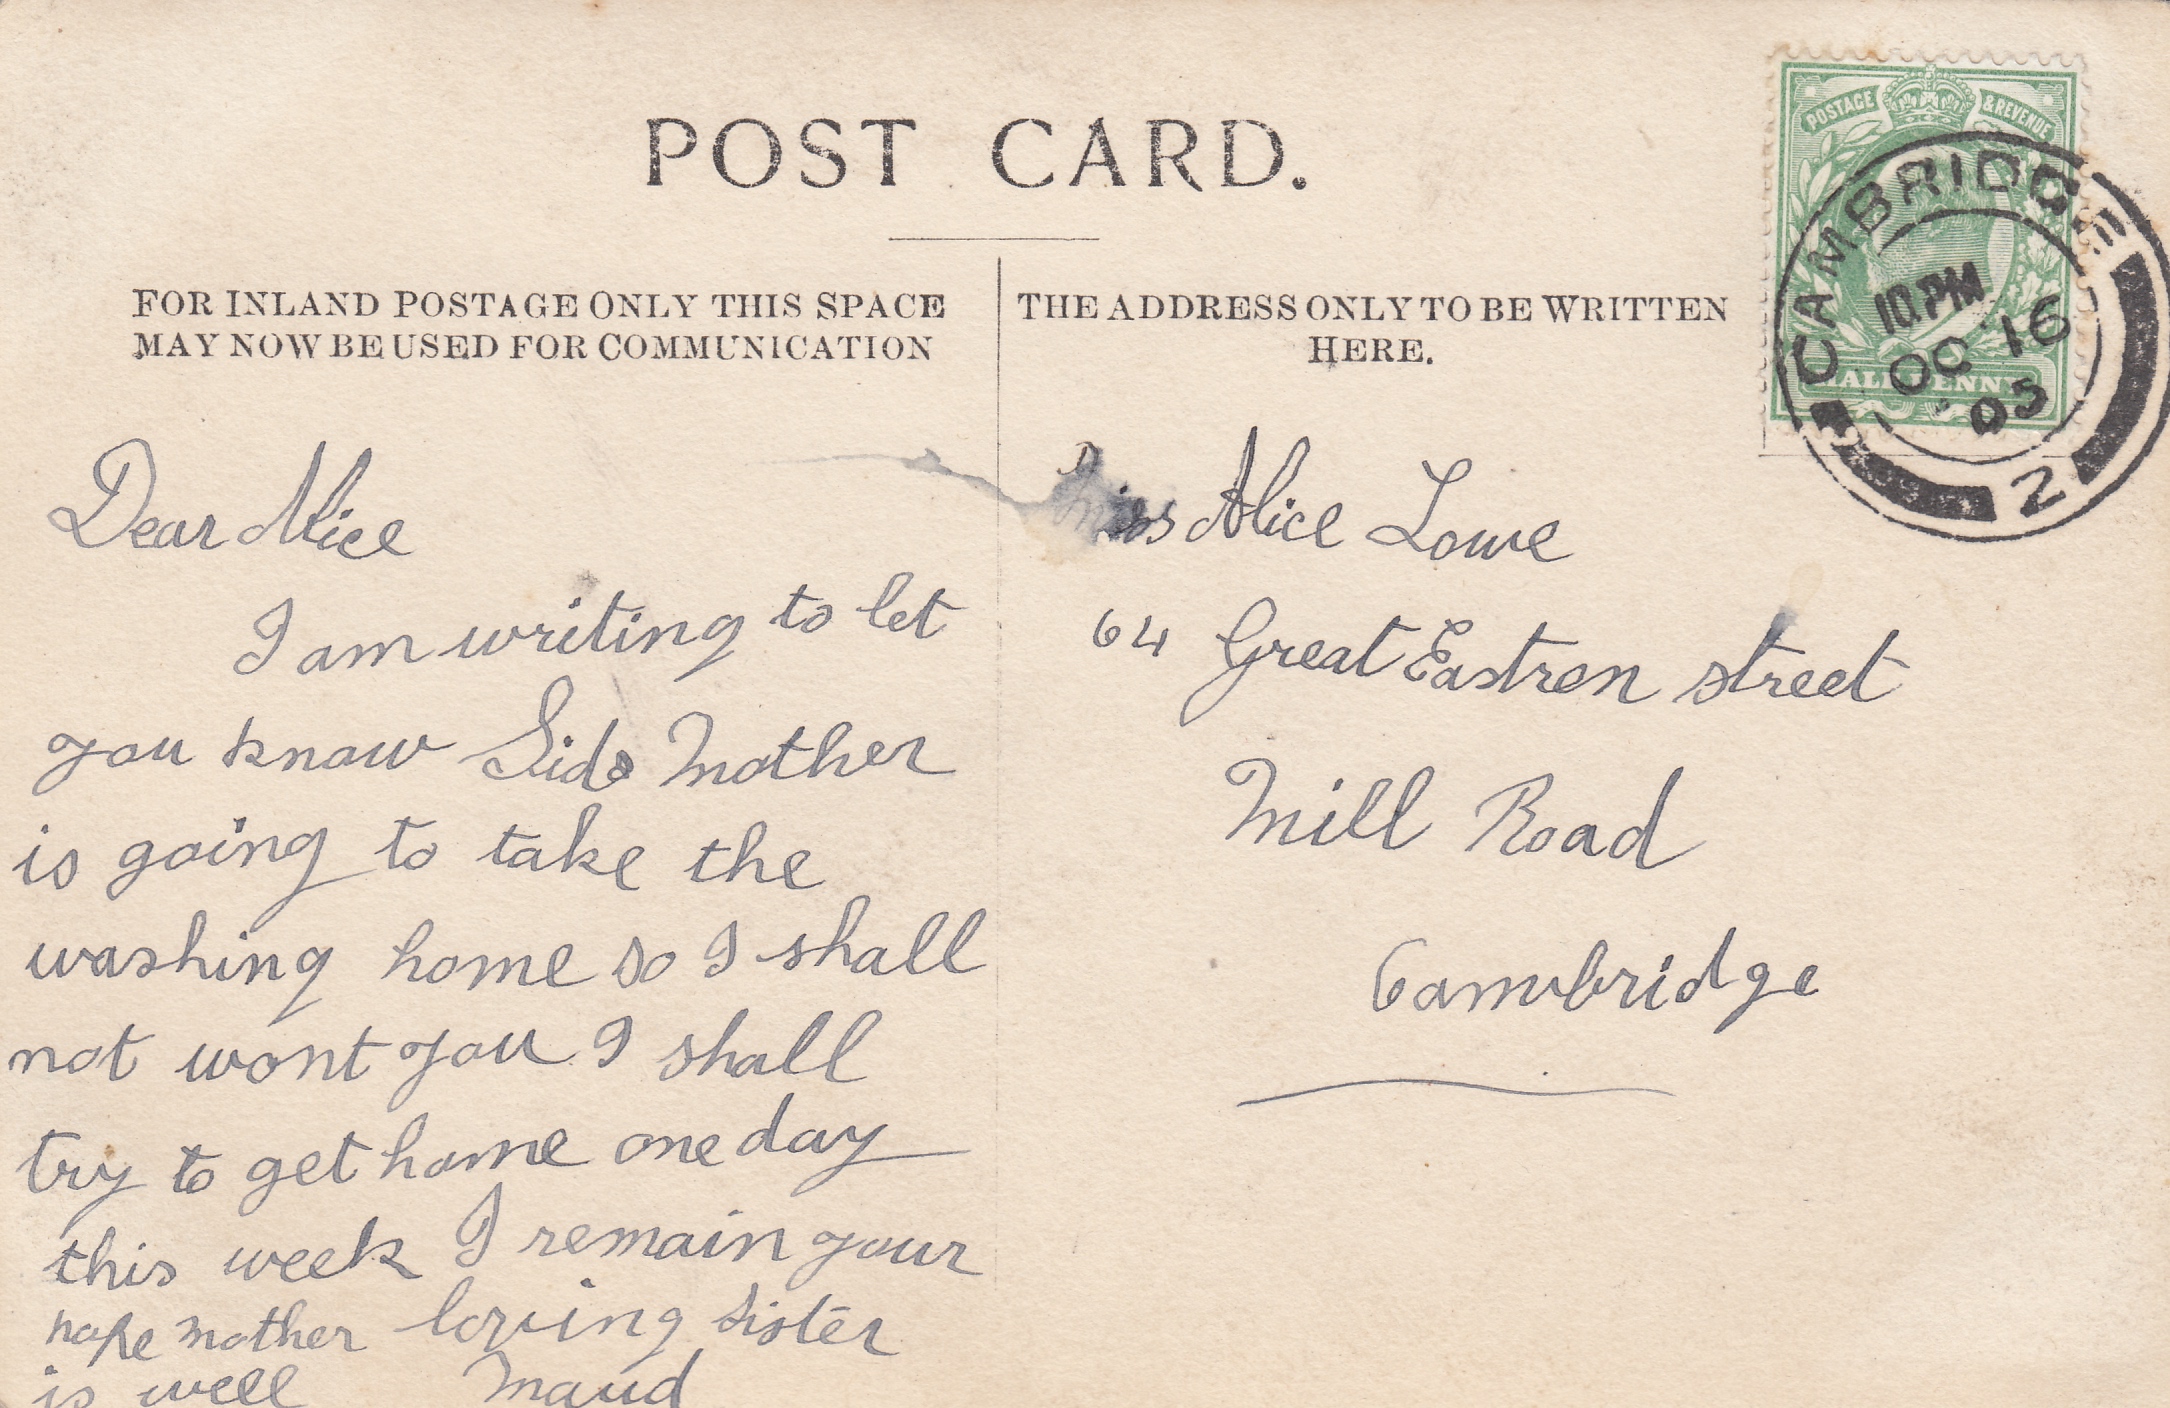 POST CARD.
FOR INLAND POSTAGE ONLY THIS SPACE
MAY NOW BE USED FOR COMMUNICATION
THE ADDRESS ONLY TO BE WRITTEN
HERE.
POSTAGE & REVENUE
HALFPENNY
CAMBRIDGE
10.PM
OC 16
05
2
Dear Alice
I am writing to let
you know Sids Mother
is going to take the
washing home so I shall
not wont you I shall
try to get home one day
this week I remain your
loving sister
Maud
hope mother
is well
Miss Alice Lowe
64 Great Eastren street
Mill Road
Cambridge